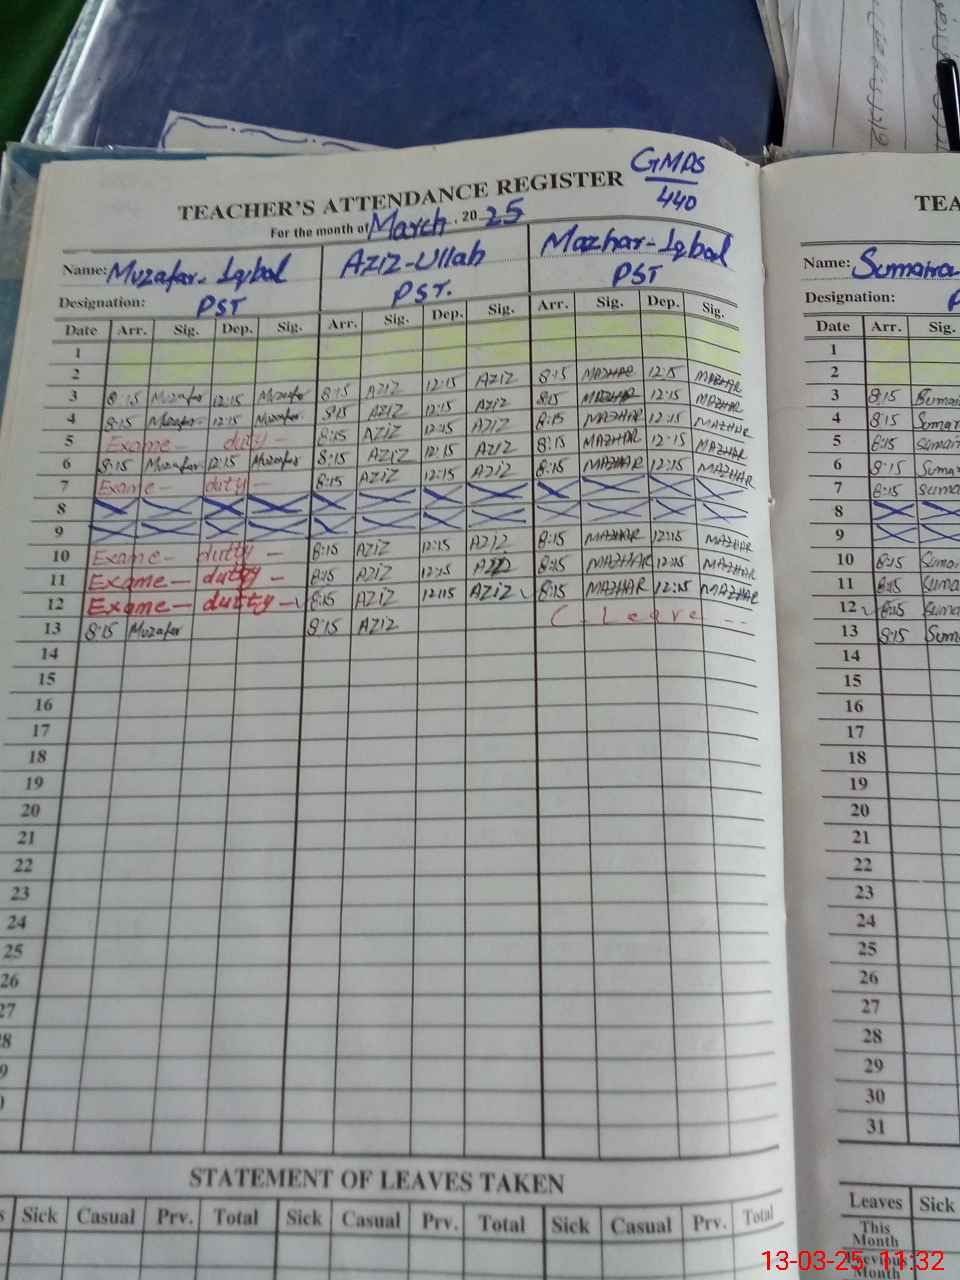 GMPS
440
TEACHER'S ATTENDANCE REGISTER
For the month of March, 2025
Name: Muzafar-Iqbal Aziz-Ullah Mazhar-Iqbal
Designation: PST PST. PST
Date Arr. Sig. Dep. Sig. Arr. Sig. Dep. Sig. Arr. Sig. Dep. Sig.
1
2
3 8:15 Muzafar 12:15 Muzafar 8:15 AZIZ 12:15 AZIZ 8:15 MAZHAR 12:15 MAZHAR
4 8:15 Muzafar 12:15 Muzafar 8:15 AZIZ 12:15 AZIZ 8:15 MAZHAR 12:15 MAZHAR
5 Exame - duty - 8:15 AZIZ 12:15 AZIZ 8:15 MAZHAR 12:15 MAZHAR
6 8:15 Muzafar 12:15 Muzafar 8:15 AZIZ 12:15 AZIZ 8:15 MAZHAR 12:15 MAZHAR
7 Exame - duty - 8:15 AZIZ 12:15 AZIZ 8:15 MAZHAR 12:15 MAZHAR
8
9
10 Exame - dutty - 8:15 AZIZ 12:15 AZIZ 8:15 MAZHAR 12:15 MAZHAR
11 Exame - dutty - 8:15 AZIZ 12:15 AZIZ 8:15 MAZHAR 12:15 MAZHAR
12 Exame - dutty - 8:15 AZIZ 12:15 AZIZ 8:15 MAZHAR 12:15 MAZHAR
13 8:15 Muzafar 8:15 AZIZ C. Leave --
14
15
16
17
18
19
20
21
22
23
24
25
26
27
STATEMENT OF LEAVES TAKEN
Sick Casual Prv. Total Sick Casual Prv. Total Sick Casual Prv. Total
TEA
Name: Sumaira
Designation:
Date Arr. Sig.
1
2
3 8:15
4 8:15
5 8:15
6 8:15
7 8:15
8
9
10 8:15
11 8:15
12 8:15
13 8:15
14
15
16
17
18
19
20
21
22
23
24
25
26
27
28
29
30
31
Leaves Sick
This Month
Previous Month
13-03-25 11:32